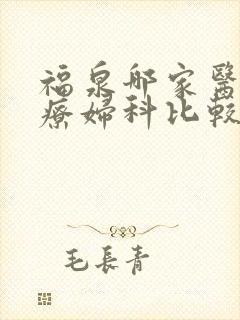 福泉那家醫
療婦科比較
毛長青